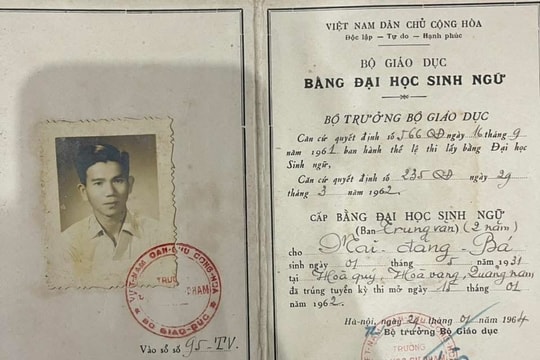 VIỆT NAM DÂN CHỦ CỘNG HÒA
Độc lập — Tự do — Hạnh phúc
BỘ GIÁO DỤC
BẰNG ĐẠI HỌC SINH NGỮ
BỘ TRƯỞNG BỘ GIÁO DỤC
Căn cứ quyết định số 566 QĐ ngày 16 tháng 9
năm 1961 ban hành thể lệ thi lấy bằng Đại học
Sinh ngữ,
Căn cứ quyết định số 235 QĐ ngày 29
tháng 3 năm 1962.
CẤP BẰNG ĐẠI HỌC SINH NGỮ
(Ban Trung văn) (2 năm)
cho Mai-đăng-Bá
sinh ngày 01 tháng 5 năm 1931
tại Hoà quý, Hoà vang, Quảng nam
đã trúng tuyển kỳ thi mở ngày 15 tháng 01
năm 1962.
Hà-nội, ngày 24 tháng 01 năm 1964
Bộ trưởng Bộ Giáo dục
TRƯỜNG
VIỆT-NAM DÂN-CHỦ CỘNG-HÒA
BỘ GIÁO-DỤC
Vào sổ số 95-TV.